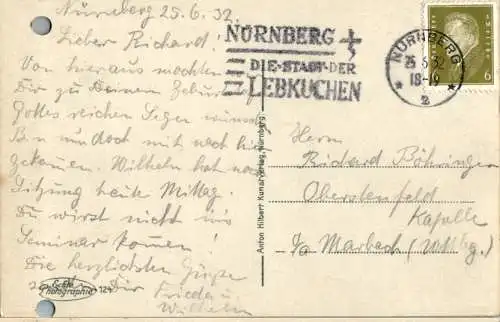 Nürnberg 25.6.32.
Lieber Richard!
Von hier aus möchten
Dir zu Deinem Geburts
Gottes reichen Segen wünsch
Bin nun doch mit nach hier
gekommen. Wilhelm hat noch
Sitzung heute Mittag.
Du wirst nicht ins
Seminar kommen!
Die herzlichsten Grüße
Dir
Frieda u.
Wilhelm
Echte
Photographie
124
Anton Hilbert Kunstverlag, Nürnberg
NÜRNBERG
DIE·STADT·DER
LEBKUCHEN
NÜRNBERG
25.6.32
18-19
* 2 *
6
Herrn
Richard Böhringer
Oberstenfeld
Kapelle
Marbach (Wttbg.)